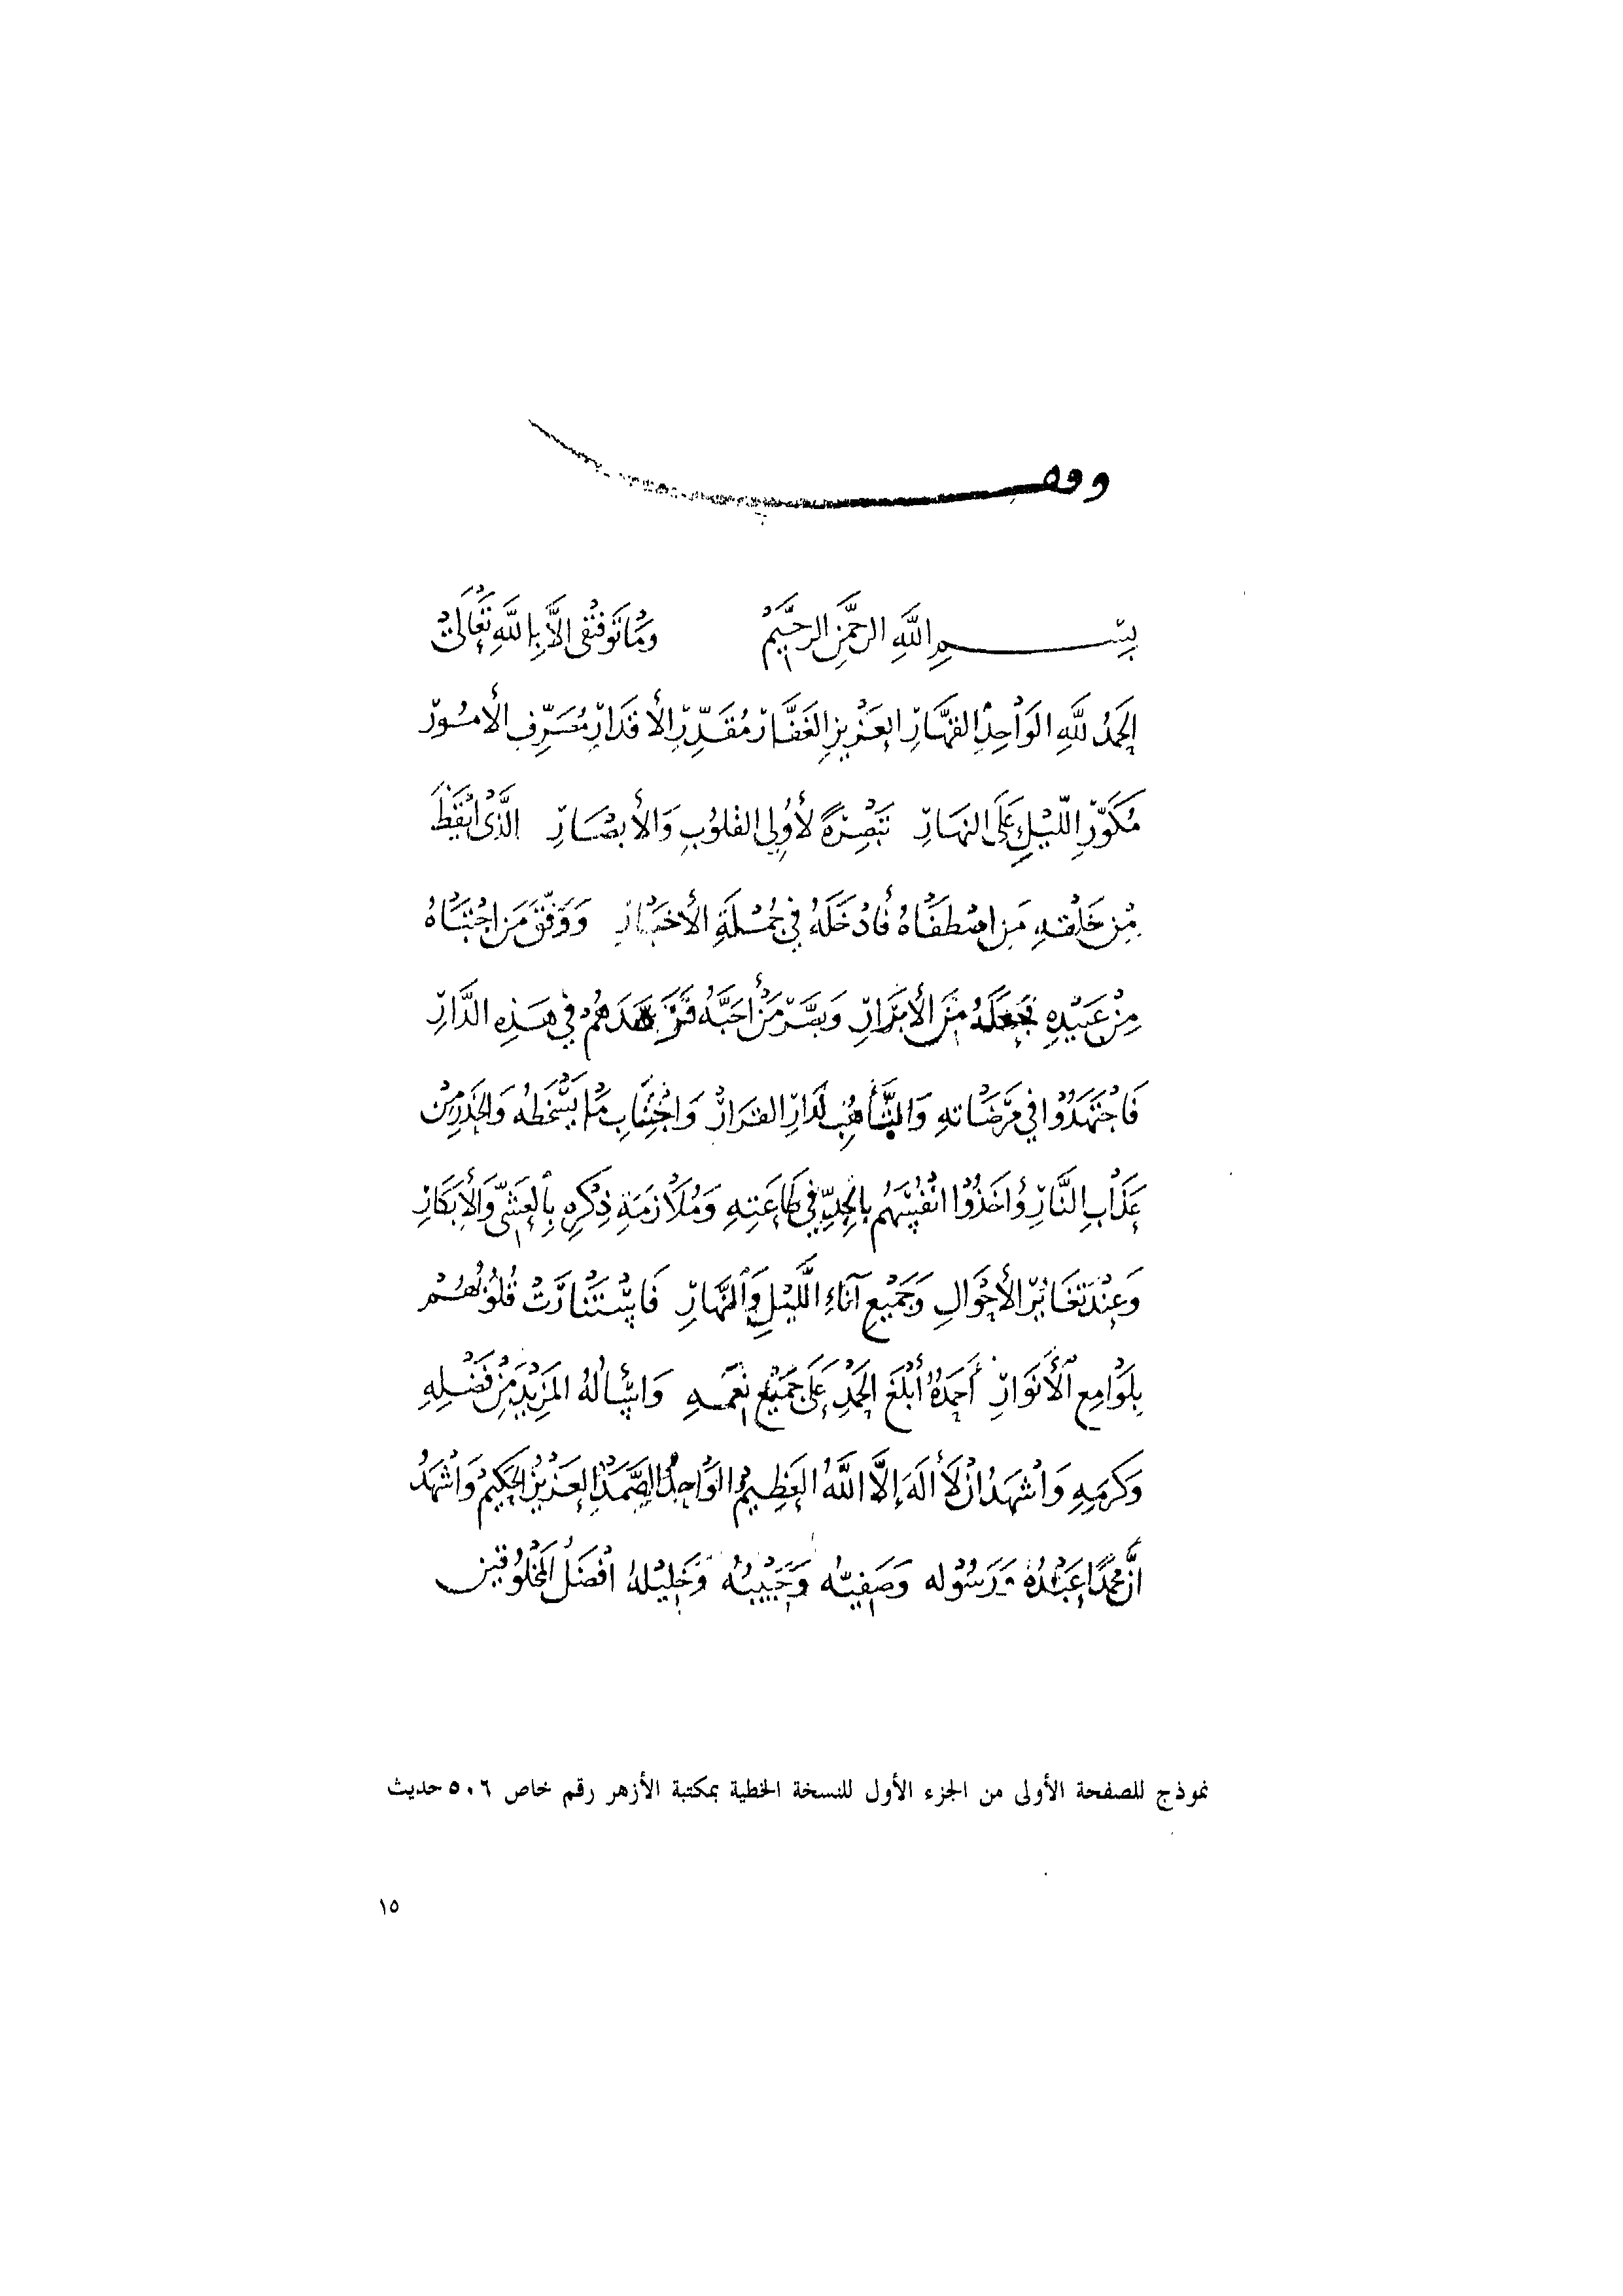 وقف
بِسْمِ اللَّهِ الرَّحْمَنِ الرَّحِيمِ وَمَا تَوْفِيقِي إِلَّا بِاللَّهِ تَعَالَى
الحَمْدُ للَّهِ الوَاحِدِ القَهَّارِ العَزِيزِ الغَفَّارِ مُقَدِّرِ الأَقْدَارِ مُصَرِّفِ الأُمُورِ
مُكَوِّرِ اللَّيْلِ عَلَى النَهَارِ تَبْصِرَةً لأُولِي القُلُوبِ وَالأَبْصَارِ الَّذِي أَيْقَظَ
مِنْ خَلْقِهِ مَنِ اصْطَفَاهُ فَأَدْخَلَهُ فِي جُمْلَةِ الأَخْيَارِ وَوَفَّقَ مَن اجْتَبَاهُ
مِنْ عَبِيْدِهِ فَجَعَلَهُ مِنَ الأَبْرَارِ وَبَصَّرَ مَنْ أَحَبَّهُ فَزَهَّدَهُمْ فِي هَذِهِ الدَّارِ
فَاجْتَهَدُوا فِي مَرْضَاتِهِ وَالتَّأَهُّبِ لِدَارِ القَرَارِ وَاجْتِنَابِ مَا يُسْخِطُهُ وَالحَذَرِ مِنْ
عَذَابِ النَّارِ وَأَخَذُوا أَنْفُسَهُم بِالجِدِّ فِي طَاعَتِهِ وَمُلَازَمَةِ ذِكْرِهِ بِالعَشِيِّ وَالإِبْكَارِ
وَعِنْدَ تَغَايُرِ الأَحْوَالِ وَجَمِيْعِ آنَاءِ اللَّيْلِ وَالنَّهَارِ فَاسْتَنَارَتْ قُلُوبُهُمْ
بِلَوَامِعِ الأَنْوَارِ أَحْمَدُهُ أَبْلَغَ الحَمْدِ عَلَى جَمِيْعِ نِعَمِهِ وَأَسْأَلُهُ المَزِيْدَ مِنْ فَضْلِهِ
وَكَرَمِهِ وَأَشْهَدُ أَنْ لَا إِلَهَ إِلَّا اللَّهُ العَظِيمُ الوَاحِدُ الصَّمَدُ العَزِيْزُ الحَكِيمُ وَأَشْهَدُ
أَنَّ مُحَمَّدًا عَبْدُهُ وَرَسُوْلُه وَصَفِيُّه وَحَبِيْبُهُ وَخَلِيْلُهُ أَفْضَلُ المَخْلُوْقِينَ
نموذج للصفحة الأولى من الجزء الأول للنسخة الخطية بمكتبة الأزهر رقم خاص ٥٠٦ حديث
١٥